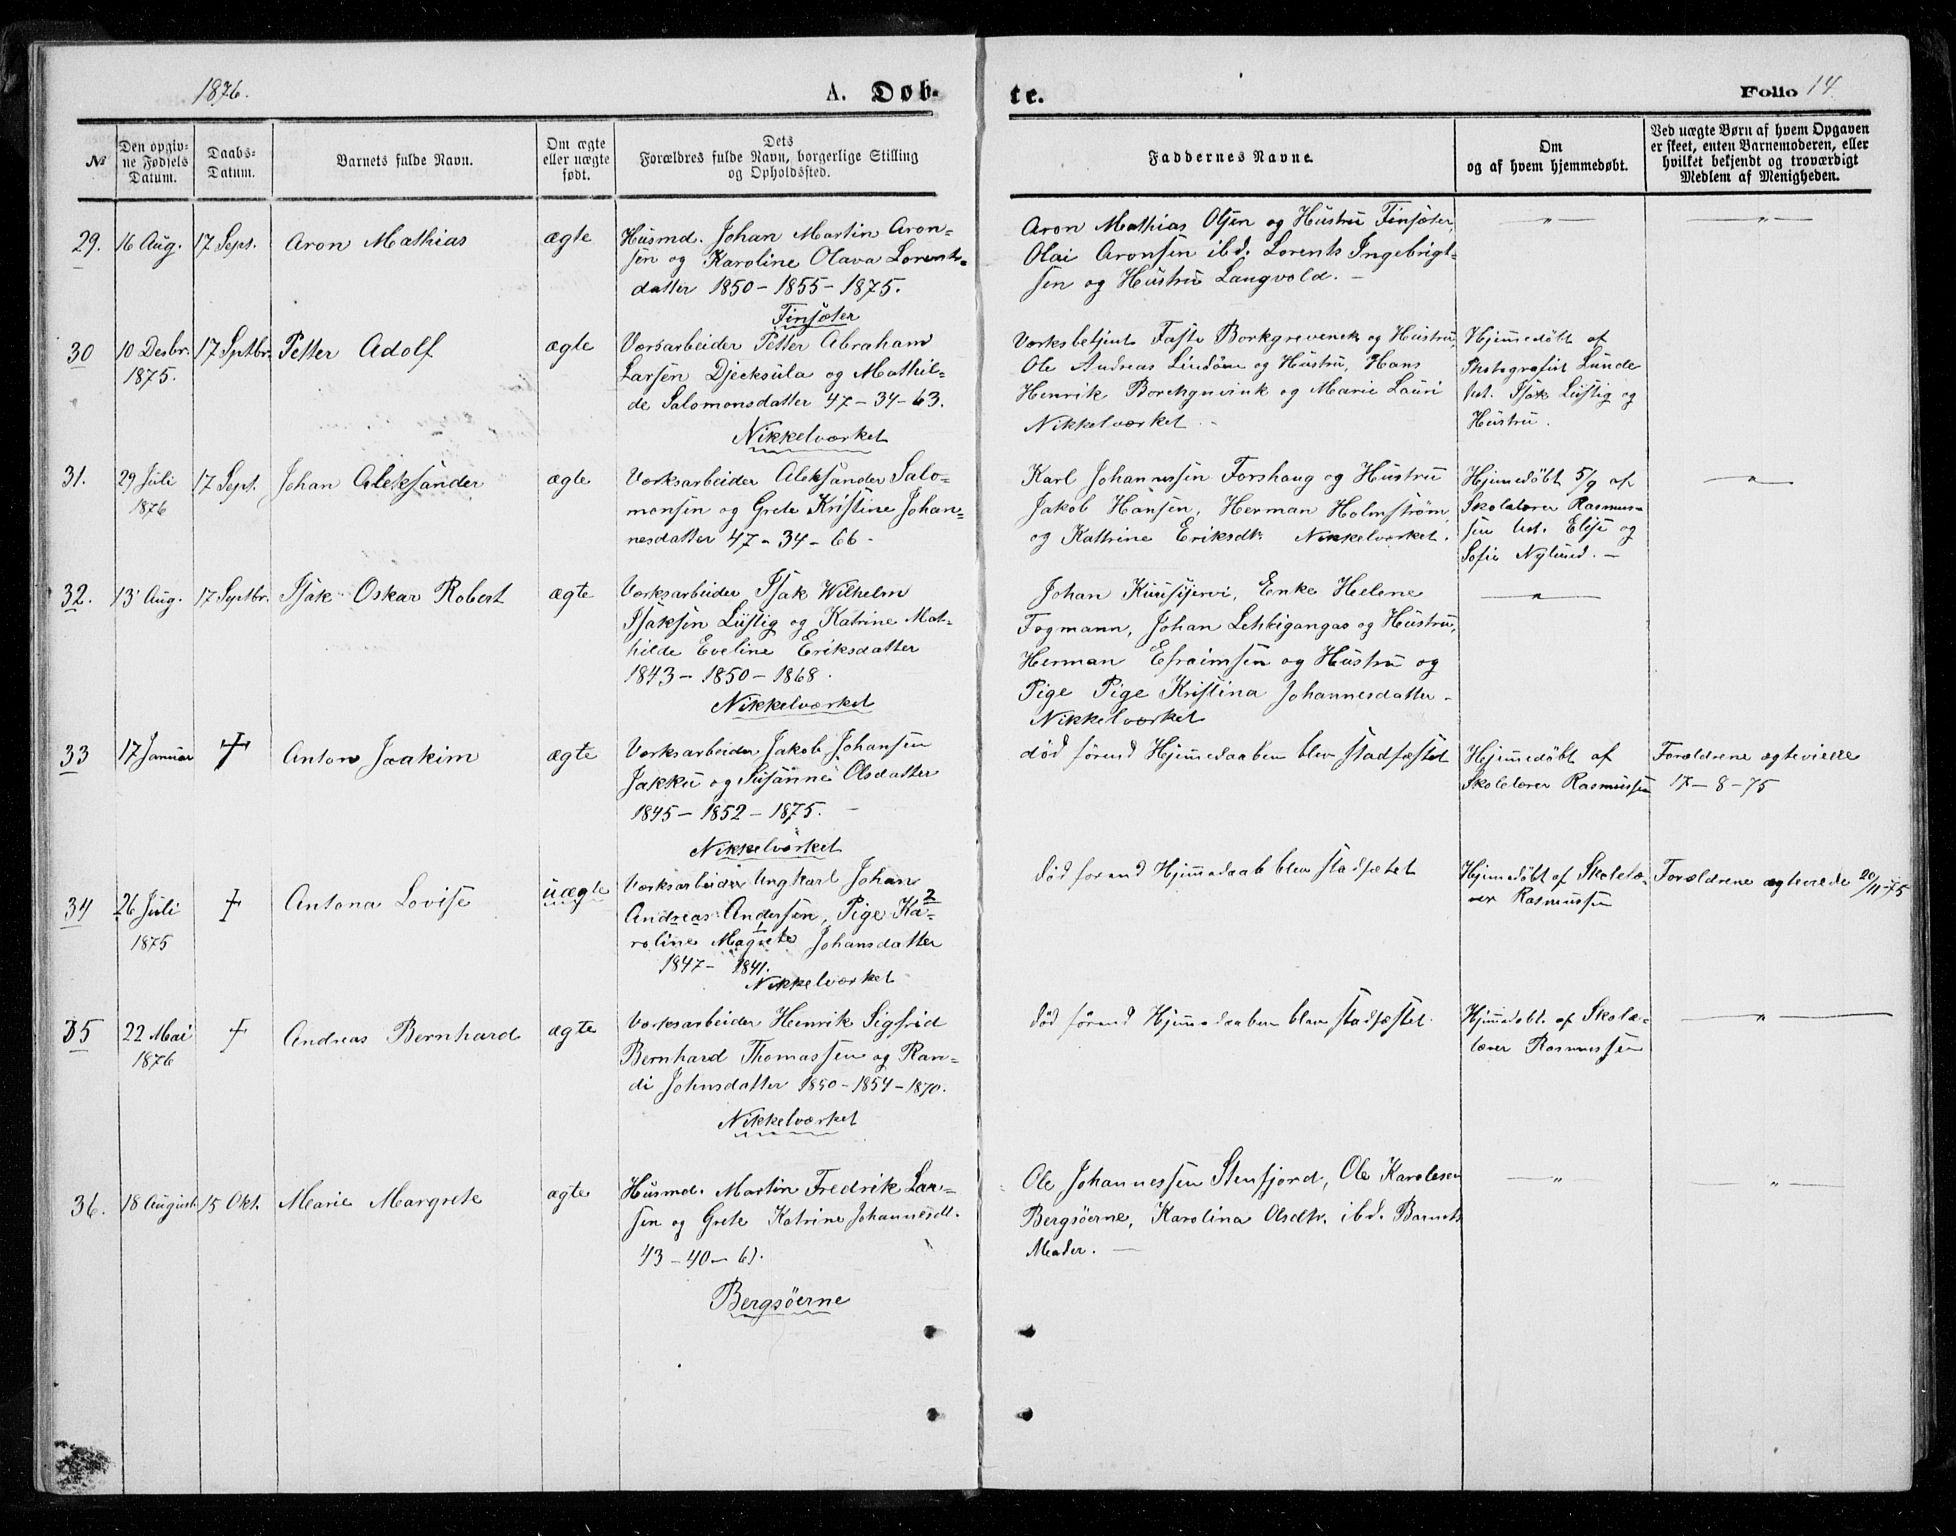 1876.
A. Døb-
te.
Folio 14.
No
Den opgiv-
ne Fødsels
Datum.
Daabs-
Datum.
Barnets fulde Navn.
Om ægte
eller uægte
født.
Dets
Forældres fulde Navn, borgerlige Stilling
og Opholdssted.
Faddernes Navne.
Om
og af hvem hjemmedøbt.
Ved uægte Børn af hvem Opgaven
er skeet, enten Barnemoderen, eller
hvilket bekjendt og troværdigt
Medlem af Menigheden.
29.
16 Aug.
17 Sept.
Aron Mathias
ægte
Husmd. Johan Martin Aron-
sen og Karoline Olava Lorents-
datter 1850 - 1855 - 1875.
Finsæter
Aron Mathias Olsen og Hustru Finsæter,
Olai Aronsen ibd. Lorents Ingebrigt-
sen og Hustru Langvold. -
30
10 Desbr.
1875.
17 Septbr.
Petter Adolf
ægte
Værsarbeider Petter Abraham
Larsen Djecksula og Mathil-
de Salomonsdatter 47 - 34 - 63.
Nikkelværket
Værksbetjent Faste Borkgrevenck og Hustru,
Ole Andreas Lindøen og Hustru, Hans
Henrik Borchgrevink og Marie Lauri
Nikkelværket
Hjemmedøbt af
Photografist Lunde
test. Isak Lustig og
Hustru.
31.
29 Juli
1876
17 Sept.
Johan Aleksander
ægte
Værksarbeider Aleksander Salo-
monsen og Grete Kristine Johan-
nesdatter 47 - 34 - 66 -
Karl Johannessen Forshaug og Hustru
Jakob Hansen, Herman Holmstrøm,
og Kattrine Eriksdt. Nikkelværket.
Hjemmedøbt 5/9 af
Skolelærer Rasmus-
sen test. Elise og
Sofie Nylund. -
32.
13 Aug.
17 Septbr.
Isak Oskar Robert
ægte
Værksarbeider Isak Wilhelm
Isaksen Lustig og Katrine Mat-
hilde Eveline Eriksdatter
1843 - 1850 - 1868.
Nikkelværket
Johan Kuusijervi, Enke Helene
Fogmann, Johan Lehkigangas og Hustru,
Herman Efraimsen og Hustru og
Pige Pige Kristina Johannesdatter -
Nikkelværket
33
17 Januar
†
Anton Joakim
ægte
Værksarbeider Jakob Johansen
Jakku og Susanne Olsdatter
1845 - 1852 - 1875. -
Nikkelværket
død førend Hjemmedaaben blev stadfæstet
Hjemmedøbt af
Skolelærer Rasmussen
Forældrene ægteviede
17 - 8 - 75
34
26 Juli
1875
†
Antona Lovise
uægte
Værksarbeider Ungkarl Johan
Andreas Andersen, Pige Ka- 2
roline Magrete Johansdatter 1
1847 - 1841.
Nikkelværket
død forend Hjemmedaab blev stadfætet
Hjemmedøbt af Skolelæ-
rer Rasmussen
Forældrene ægteviede 20/11-75
35
22 Mai
1876
†
Andreas Bernhard
ægte
Værksarbeider Henrik Sigfrid
Bernhard Thomassen og Ran-
di Johnsdatter 1850 - 1854 - 1870.
Nikkelværket
død førend Hjemmedaaben blev stadfæstet.
Hjemmedøbt af Skole-
lærer Rasmussen
36.
18 August
15 Okt.
Marie Margrete
ægte
Husmd. Martin Fredrik Lar-
sen og Grete Katrine Johannesdt.
43 - 40 - 61.
Bergsøerne
Ole Johannessen Stensfjord, Ole Karolesen
Bergsøerne, Karolina Olsdtr. ibd. Barnets
Moder. -